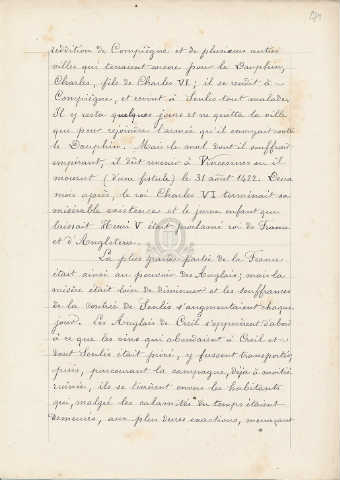 reddition de Compiègne et de plusieurs autres
villes qui tenaient encore pour le Dauphin,
Charles, fils de Charles VI ; il se rendit à
Compiègne, et revint à Senlis tout malade.
Il y resta quelques jours et ne quitta la ville
que pour rejoindre l'armée qu'il envoyait contre
le Dauphin. Mais le mal dont il souffrait
empirant, il dût revenir à Vincennes où il
mourut (d'une fistule) le 31 août 1422. Deux
mois après, le roi Charles VI terminait sa
misérable existence et le jeune enfant que
laissait Henri V était proclamé roi de France
et d'Angleterre.
La plus grande partie de la France
était ainsi au pouvoir des Anglais ; mais la
misère était loin de diminuer et les souffrances
de la contrée de Senlis s'augmentaient chaque
jour. Les Anglais de Creil s'opposèrent d'abord
à ce que les vins qui abondaient à Creil et
dont Senlis était privé, y fussent transportés,
puis, parcourant la campagne, déjà à moitié
ruinée, ils se livrèrent envers les habitants
qui, malgré les calamités du temps étaient
demeurés, aux plus dures exactions, menaçant